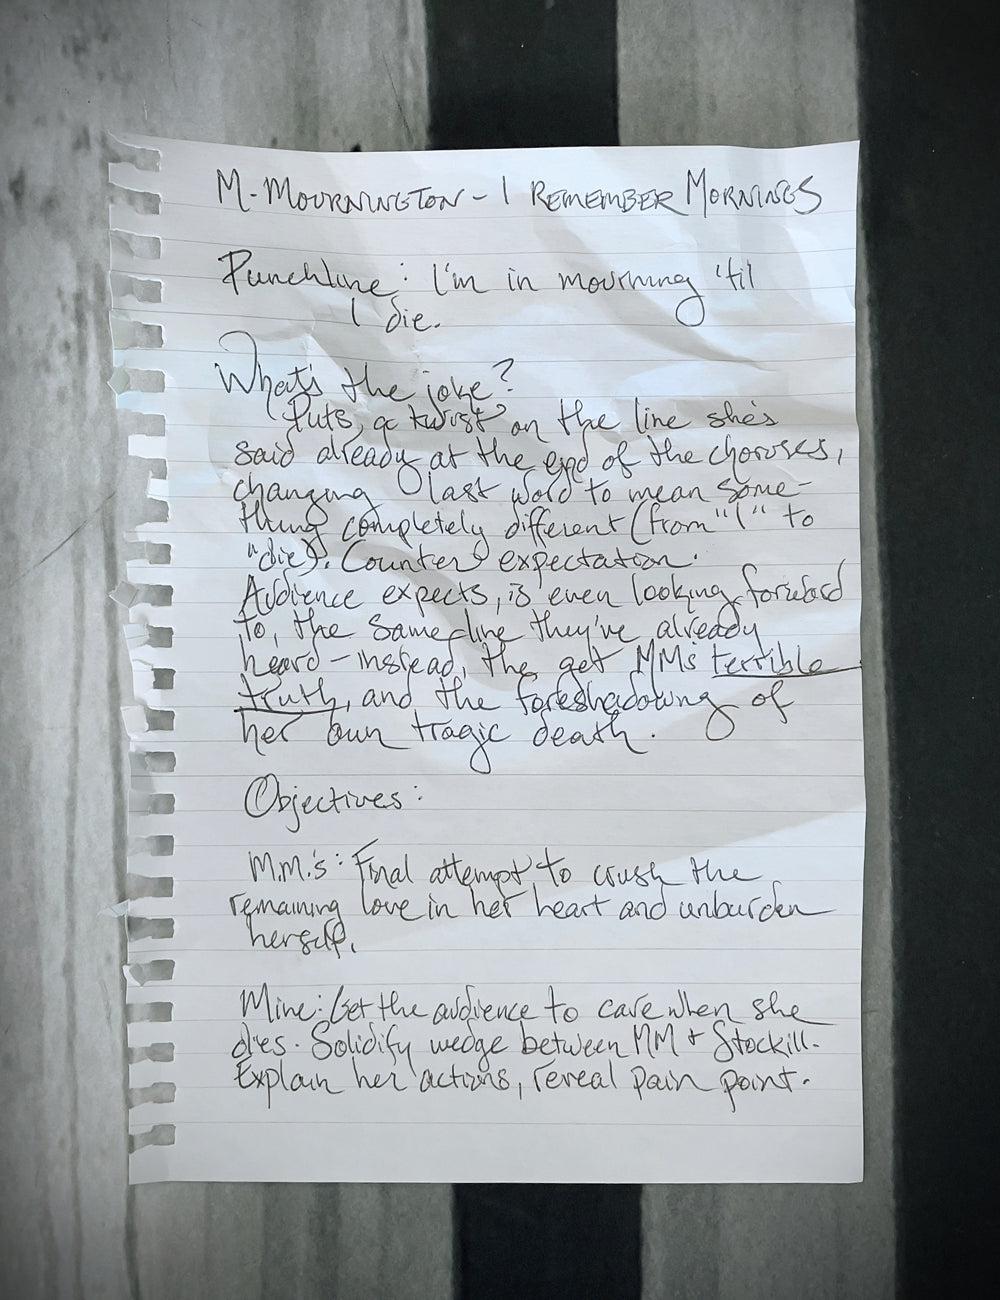 M. MOURNINGTON - I REMEMBER MORNINGS
Punchline: I'm in mourning 'til
I die.
What's the joke?
Puts a twist on the line she's
said already at the end of the choruses,
changing last word to mean some-
thing completely different (from "I" to
"die"). Counter expectation.
Audience expects, is even looking forward
to, the same line they've already
heard - instead, the get MM's terrible
truth, and the foreshadowing of
her own tragic death.
Objectives:
M.M.'s: Final attempt to crush the
remaining love in her heart and unburden
herself.
Mine: Get the audience to care when she
dies. Solidify wedge between MM + Stockill.
Explain her actions, reveal pain point.